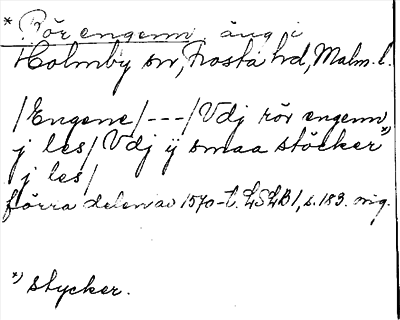 * Rörengenn, äng i
Holmby sn, Frosta hd, Malm. l.
/Engene/---/Vdj rör engenn
j les/Vdj ij smaa stöcker *)
j les/
förra delen av 1570-t. LSLB1, s. 183. mig.
*) stycker.